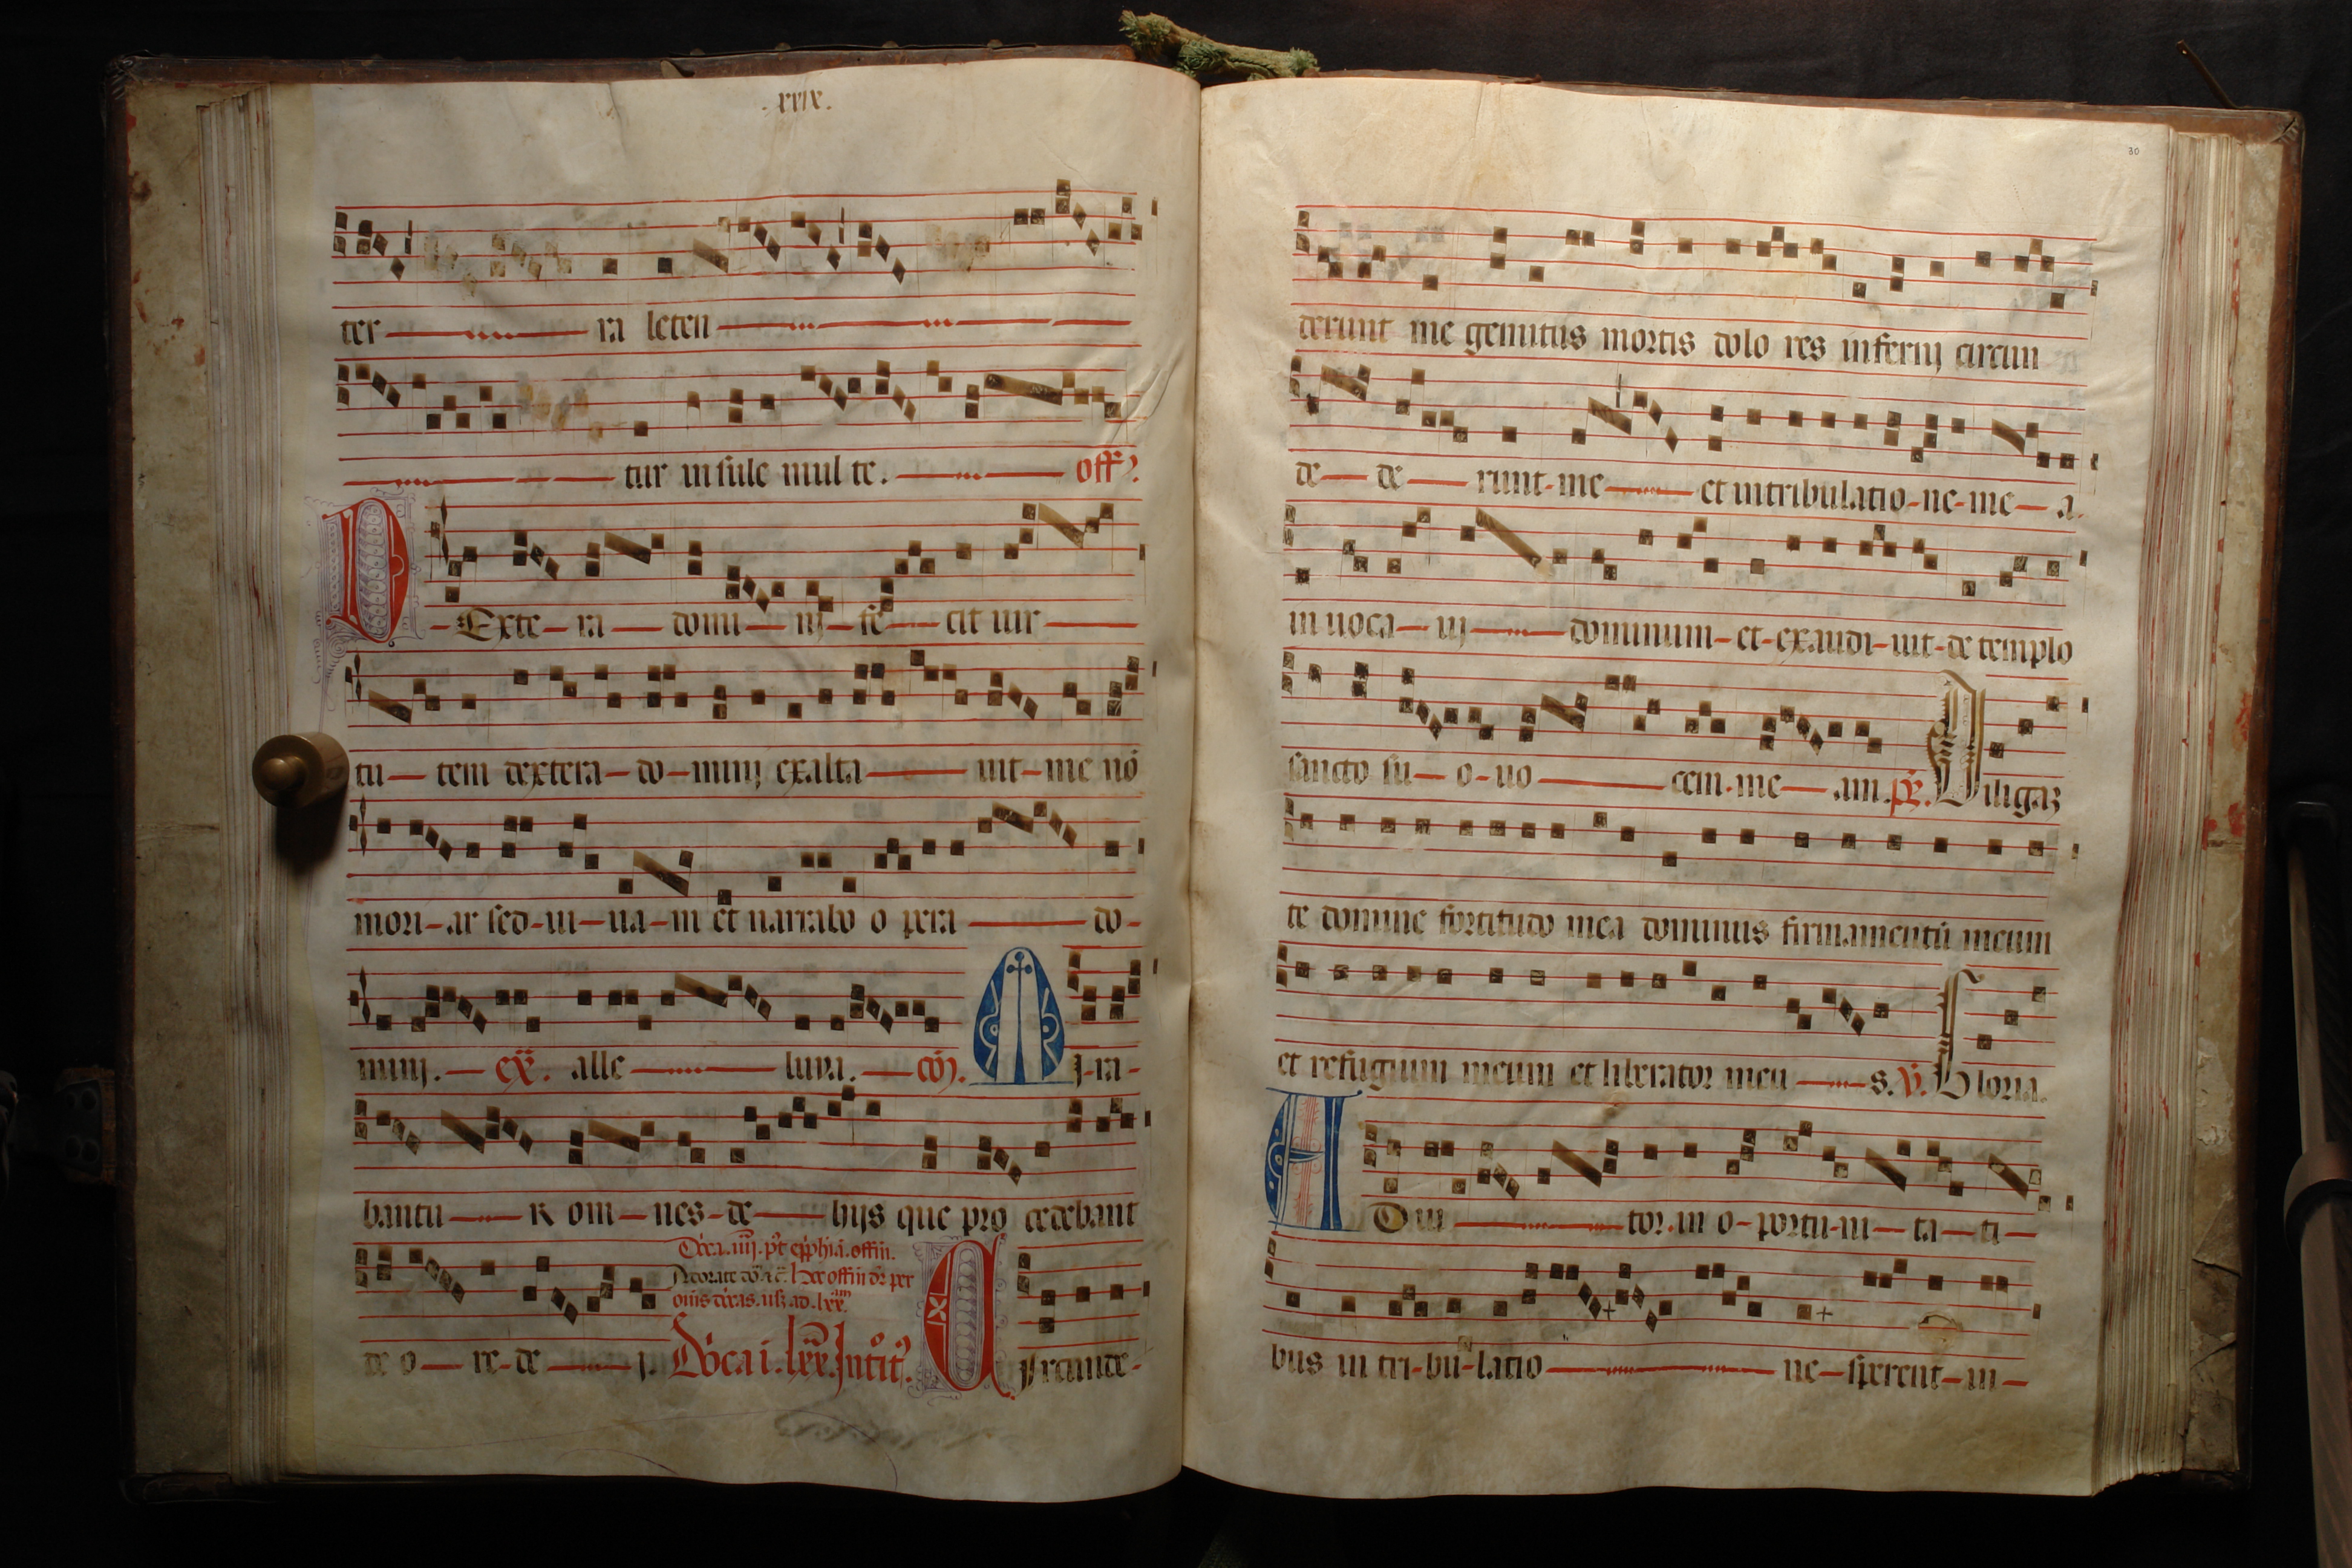 .xxix.
ter ra leten
tur insule multe. off?.
DExtera domini fecit uir
tutem dextera dominij exaltauit me nō
moriar sed uiuam et narrabo opera do-
minij. alleluya. coī. Mira-
bantur omnes de hijs que procedebant
Dñica. iiij. p't epyphīa. offm.
Adorate
de ore dei. Dñica i. lxx. Introit'. Circumde-
30
derunt me gemitus mortis dolores infernj circum
dederunt me et in tribulatione mea.
inuocauj dominum et exaudiuit de templo
sancto suo uocem meam. ps. Diligaz
te domine fortitudo mea dominus firmamentū meum
et refugium meum et liberator meus. V. Gloria.
ADiutor in oportunitati
bus in tribulatione sperent in